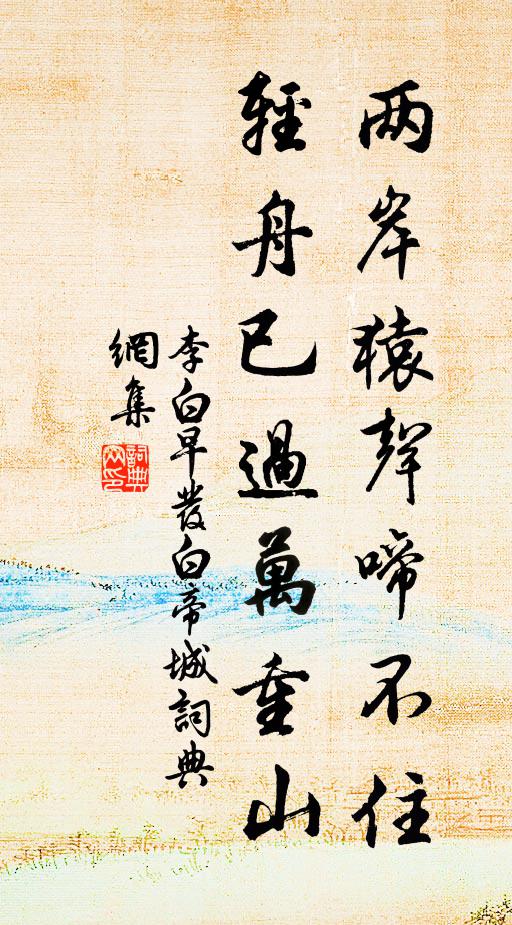 两岸猿聲啼不住
輕舟已過萬重山
李白早發白帝城詞典
網集
詞典
网印